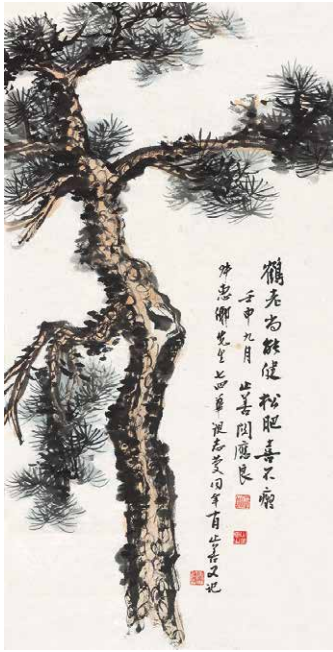 鶴老尚能健松肥喜不
壬申九月 止善関應良
惠卿先生七四華誕志慶同年 月止善又記